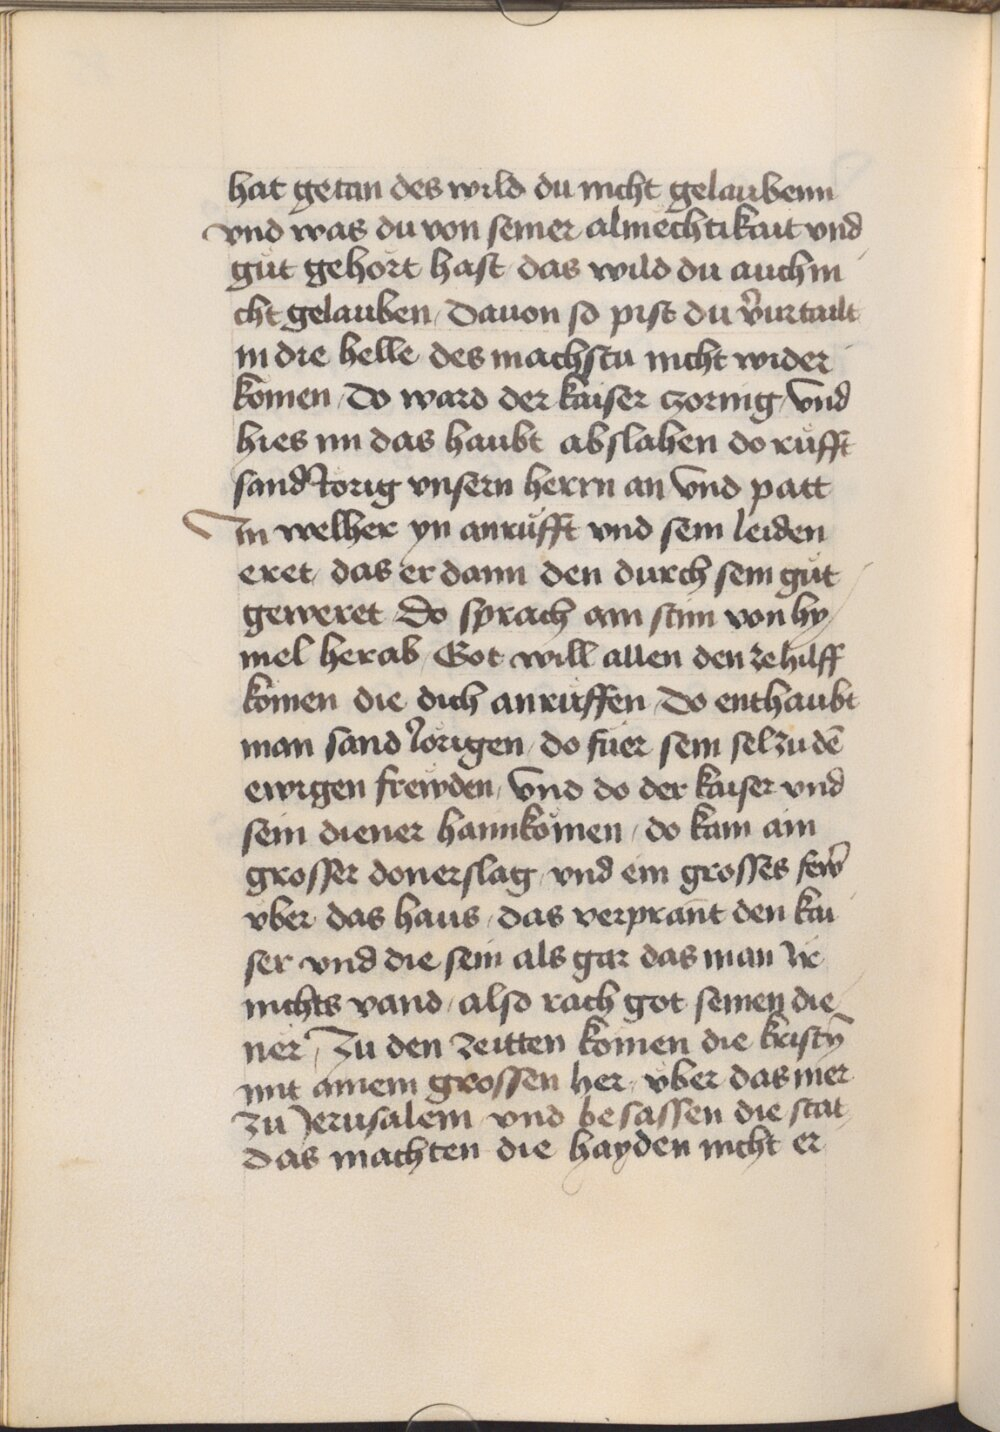 hat getan des wild du nicht gelaubenn
vnd was du von seiner almechtikait vnd
gůt gehort hast das wild du auch ni
cht gelauben / Dauon so pist du v̉urtailt
in die helle des machstu nicht wider
komen / Do ward der kaiser czornig / Vnd
hies im das haubt abslahen do růfft
sand Jorig vnsern herrn an Vnd patt
In welher yn anrůfft vnd sein leiden
eret / das er dann den durch sein gůt
geweret / Do sprach ain stim von hy /
mel herab / Got will allen den ze hilff
komen die dich anruffen / Do enthaubt
man sand Jorigen / do fuer sein sel zu dē
ewigen frewden / Vnd do der kaiser vnd
sein diener haimkomen / do kam ain
grosser donerslag / vnd ein grosses few̉
vber das haus / das verprant̄ den kai
ser vnd die sein als gar das man ir
nichts vand / also rach got seinen die
ner / Zu den zeitten komen die kristn̄
mit ainem grossen her / vber das mer
zu Jerusalem vnd besassen die stat /
das machten die hayden nicht er